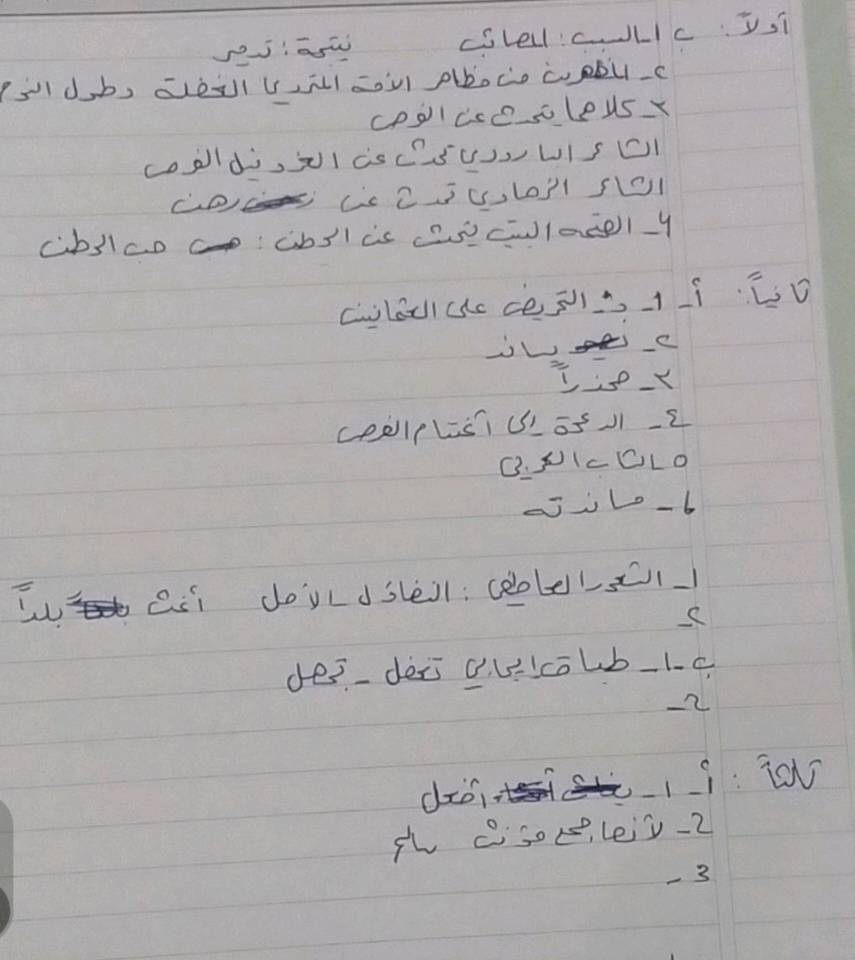 أولاً: ب ١- السبب: المصائب نتيجة: تدمر
٢- المظهرين من مظاهر الأمة المتردية الغفلة وطول النوم
٣- كلاهما يتحدث عن الفرص
الشاعر البارودي تحدث عن العز ونيل الفرص
الشاعر الزهاوي تحدث عن زمن
٤- القيمة البيت يتحدث عن الوطن: حب الوطن
ثانياً: أ- ١- التحريض على العثمانيين
٢- يساند
٣- حذراً
٤- الدعوة إلى اغتنام الفرص
٥- الشباب العربي
٦- ساندته
١- الشعور العاطفي: التفاؤل - الأمل أغث بلداً
٢-
ب- ١- طباق إيجابي تغفل - تجهل
2-
ثالثاً: أ- ١- أفعل
2- لأنها جمع مؤنث سالم
3-